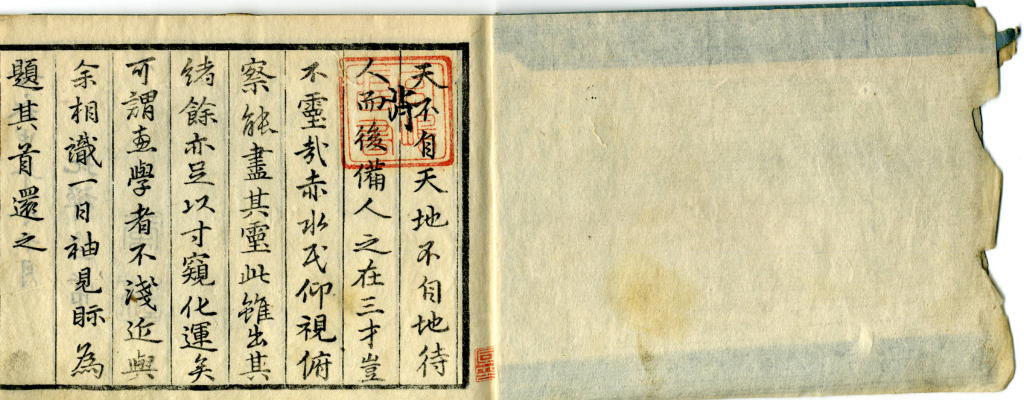 天不自天地不自地待
人而後備人之在三才豈
不靈哉赤水氏仰視俯
察能盡其靈此雖出其
緒餘亦足以寸窺化運矣
可謂惠學者不淺近與
余相識一日袖見眎為
題其首還之